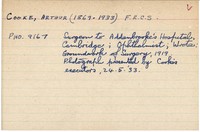 COOKE, ARTHUR (1869-1933) F.R.C.S.
PHO. 9167 Surgeon to Addenbrooke's Hospital,
Cambridge; Ophthalmist; Wrote:
Groundwork of Surgery, 1919
Photograph presented by Cooke's
executors, 24.5.33.